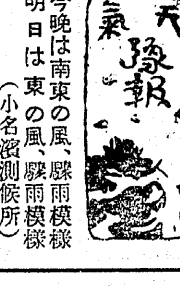 天氣
豫報
今晩は南東の風、驟雨模様
明日は東の風、驟雨模様
(小名濱測候所)